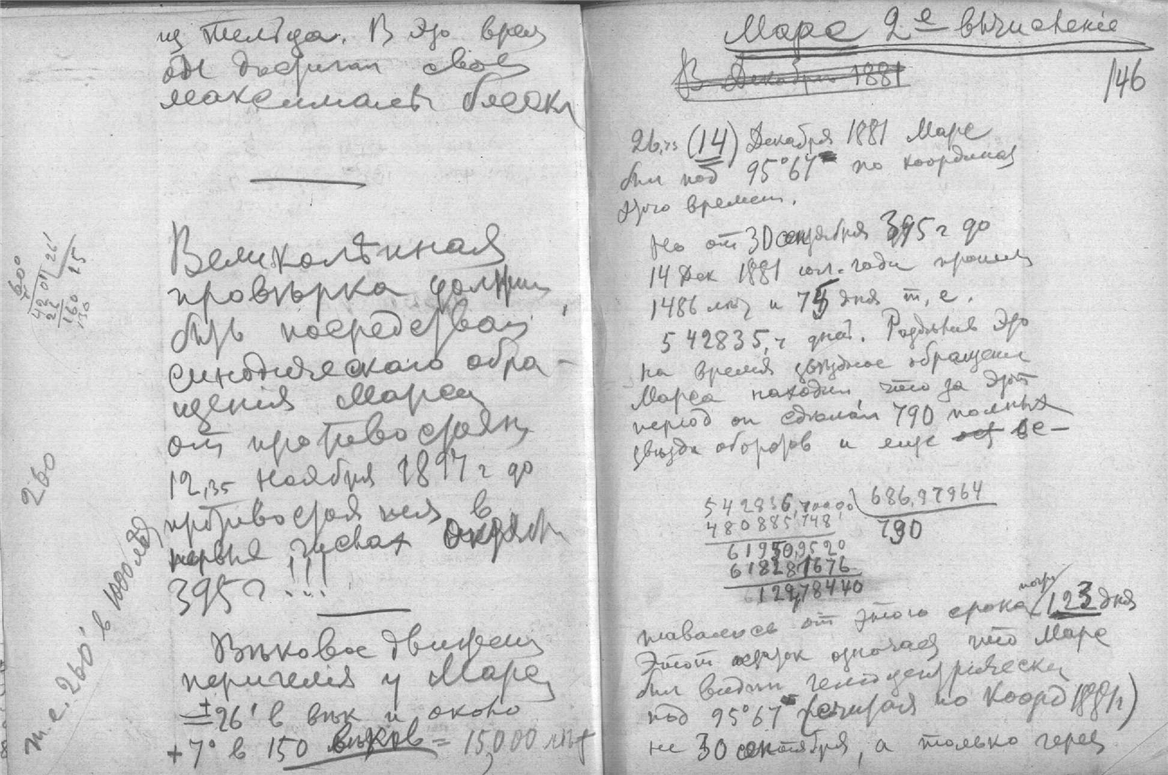 из тельца. В это время
он достигал своего
максимальн блеска
Великолѣпная
провѣрка должна
быть посредством
синодического обра-
щенія Марса
от противостоян
12,35 ноября 1877 г до
противостоянія в
первых числах октября
395 г !!!
Вѣковое движен
перигелія у Марса
±26' в вѣк и около
+7° в 150 вѣков = 15,000 лѣт
260
т.е. 260' в 1000 лѣт
Марс 2е вычисленіе
В Декабрѣ 1881
146
26,73 (14) Декабря 1881 Марс
был под 95°67' по координат
этого времен.
Но от 30 сентября 395 г до
14 Дек 1881 юл. года прошли
1486 лѣт и 75 дня т.е.
542835,7 дней. Раздѣляя это
на время звѣздное обращен
Марса находим что за этот
період он сдѣлал 790 полных
звѣздн оборотов и еще ост ос-
542836,70000 686,97964
480885,748 790
61950,9520
61828,1676
122,78440
тавалось от этого срока 123 дня
Этот означает что Марс
был видим геліоцентрически
под 95°67' (считая по Коорд 1881 г)
не 30 сентября, а только через